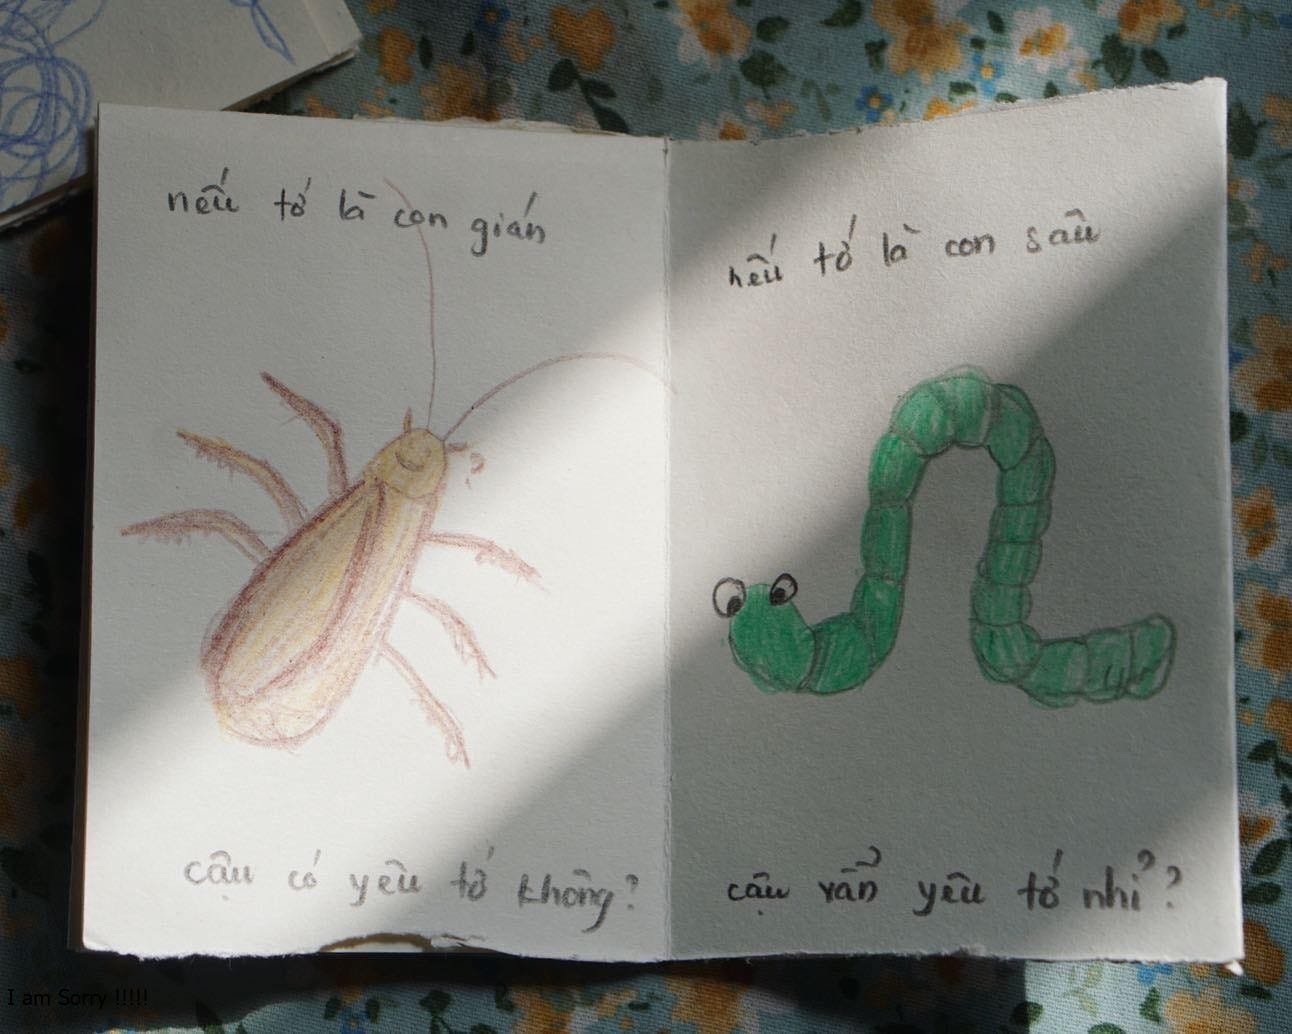 nếu tớ là con gián
cậu có yêu tớ không?
nếu tớ là con sâu
cậu vẫn yêu tớ nhỉ?
I am Sorry !!!!!